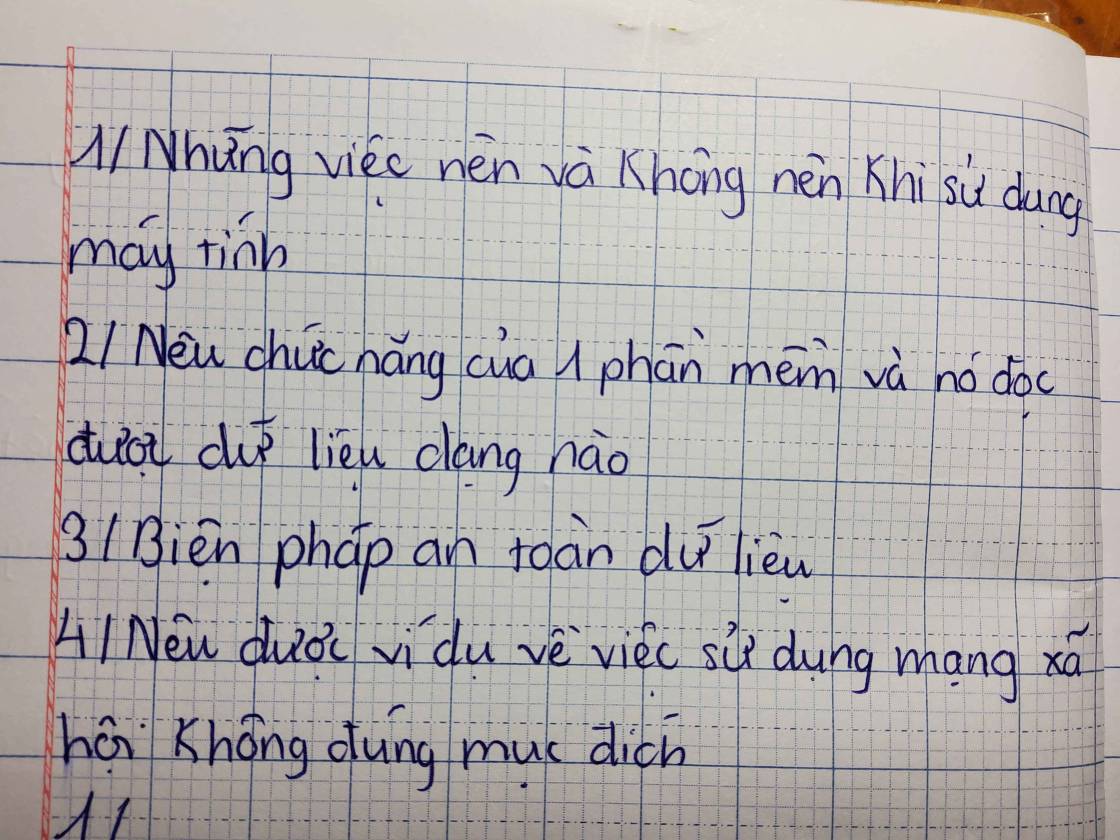 1/ Những việc nên và Không nên Khi sử dụng
máy tính
2/ Nêu chức năng của 1 phần mềm và nó đọc
được dữ liệu dạng nào
3/ Biện pháp an toàn dữ liệu
4/ Nêu được ví dụ về việc sử dụng mạng xã
hội Không đúng mục đích
1/